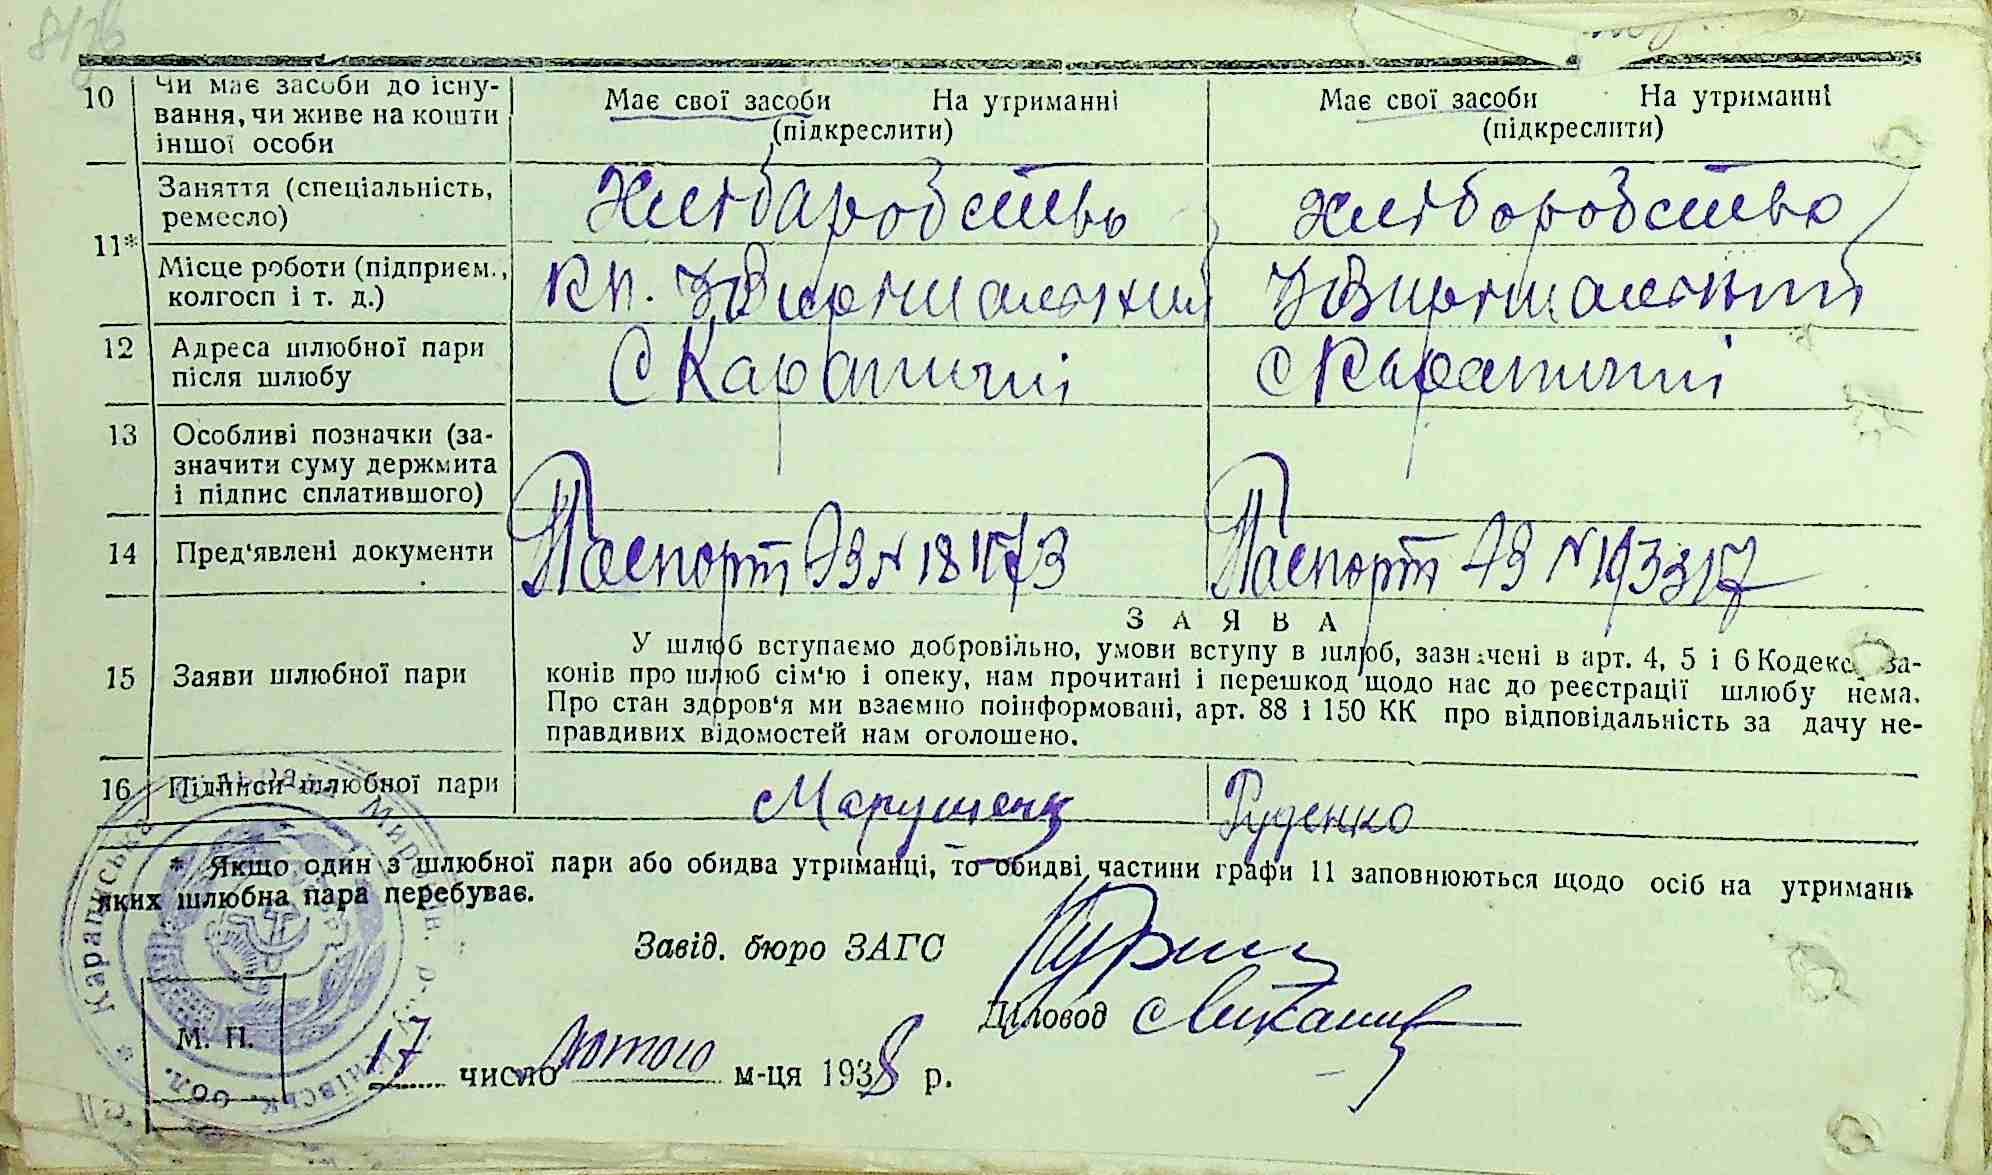 10 Чи має засоби до існу-
вання, чи живе на кошти
іншої особи
Має свої засоби На утриманні
(підкреслити)
Має свої засоби На утриманні
(підкреслити)
11*
Заняття (спеціальність,
ремесло)
Хлібаробство
хліборобство
Місце роботи (підприєм.,
колгосп і т. д.)
12 Адреса шлюбної пари
після шлюбу
С Карапиші
с Карапиші
13 Особливі позначки (за-
значити суму держмита
і підпис сплатившого)
14 Пред'явлені документи
Паспорт
Паспорт
15 Заяви шлюбної пари
ЗАЯВА
У шлюб вступаємо добровільно, умови вступу в шлюб, зазначені в арт. 4, 5 і 6 Кодекс за-
конів про шлюб сім'ю і опеку, нам прочитані і перешкод щодо нас до реєстрації шлюбу нема.
Про стан здоров'я ми взаємно поінформовані, арт. 88 і 150 КК про відповідальність за дачу не-
правдивих відомостей нам оголошено.
16 Підписи шлюбної пари
Руденко
* Якщо один з шлюбної пари або обидва утриманці, то обидві частини графи 11 заповнюються щодо осіб на утриманн
яких шлюбна пара перебуває.
Завід. бюро ЗАГС
Діловод
М. П.
17 число лютого м-ця 1938 р.